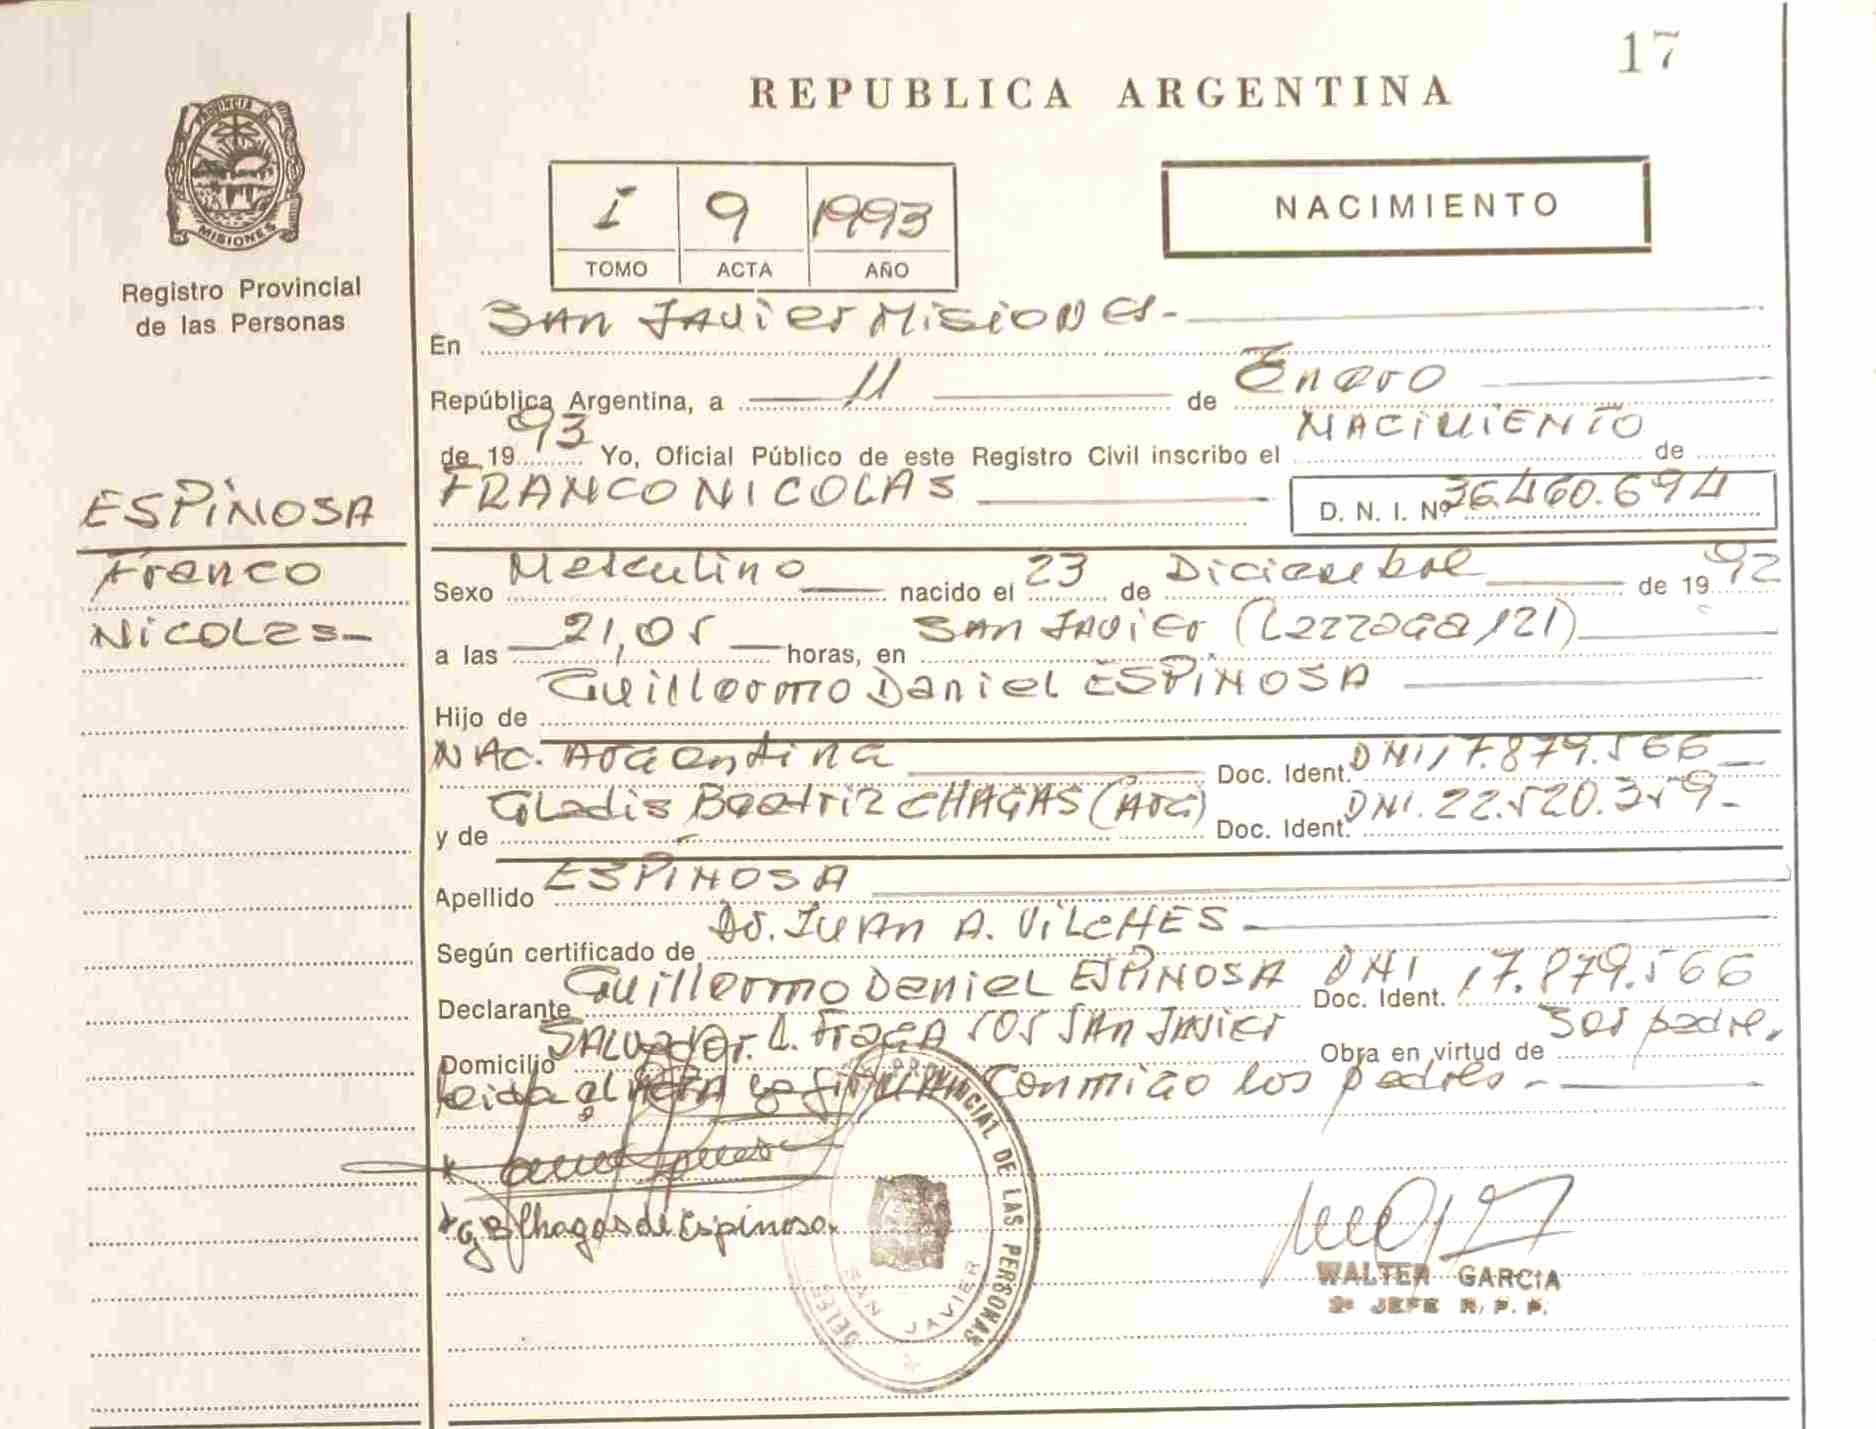 17
REPUBLICA ARGENTINA
PROVINCIA DE
MISIONES
Registro Provincial
de las Personas
I 9 1993
TOMO ACTA AÑO
NACIMIENTO
En San Javier Misiones.-
República Argentina, a 11 de Enero
de 1993 Yo, Oficial Público de este Registro Civil inscribo el NACIMIENTO de
FRANCO NICOLAS D. N. I. Nº 36.460.694
ESPINOSA
Franco
Nicolas-
Sexo Masculino nacido el 23 de Diciembre de 1992
a las 21,05 horas, en San Javier (Larraga 121)
Hijo de Guillermo Daniel ESPINOSA
NAC. Argentina Doc. Ident. DNI 17.879.566
y de Gladis Beatriz CHAGAS (ARG) Doc. Ident. DNI. 22.520.359-
Apellido ESPINOSA
Según certificado de Dr. Juan A. VILCHES
Declarante Guillermo Daniel ESPINOSA Doc. Ident. DNI 17.879.566
Domicilio Salvador L. Fraga 505 San Javier Obra en virtud de ser padre.
Leida el Acta la firman Conmigo los padres.-
G B Chagas de Espinosa.
PROVINCIAL DE LAS PERSONAS
SAN JAVIER
WALTER GARCIA
2º JEFE R. P. P.